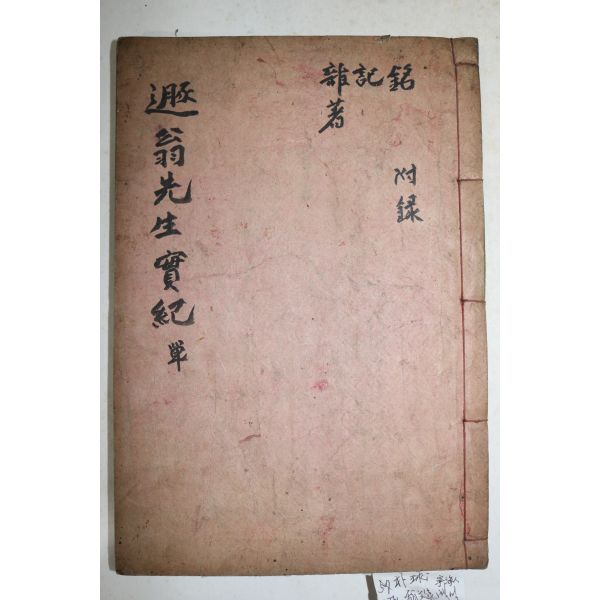 銘記雜著
附録
遯翁先生實紀 單